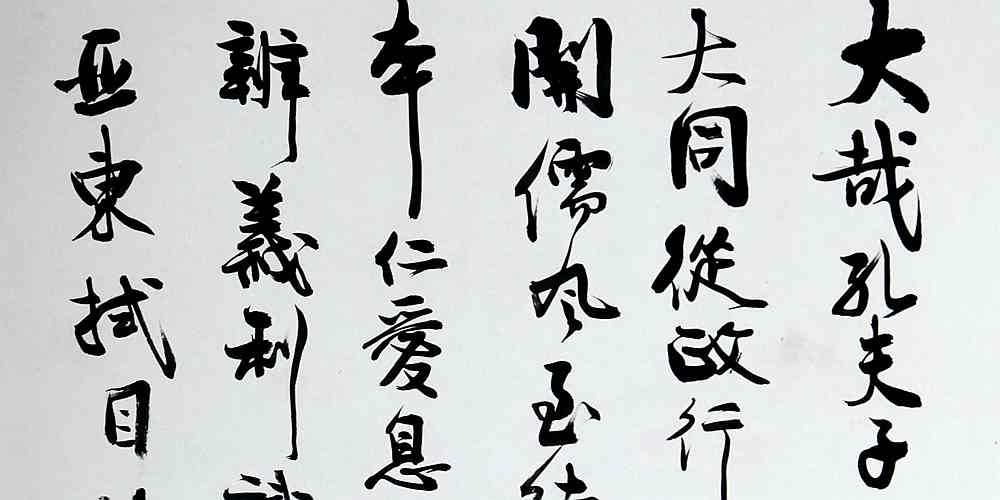 大哉孔夫子
大同從政行
開儒風至
本仁愛息
辨義利
亚東拭目